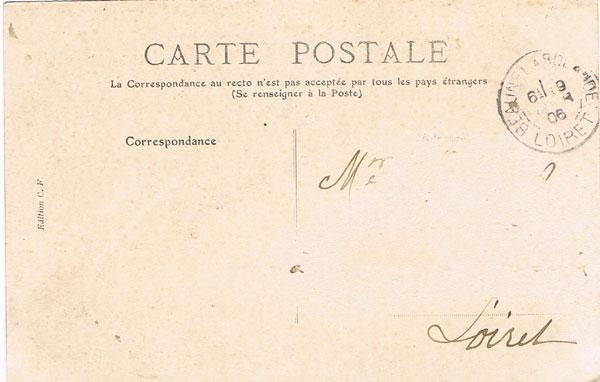 CARTE POSTALE
La Correspondance au recto n'est pas acceptée par tous les pays étrangers
(Se renseigner à la Poste)
BEAUNE LA ROLANDE
LOIRET
06
Correspondance
Edition C. F.
Mr
à
Loiret